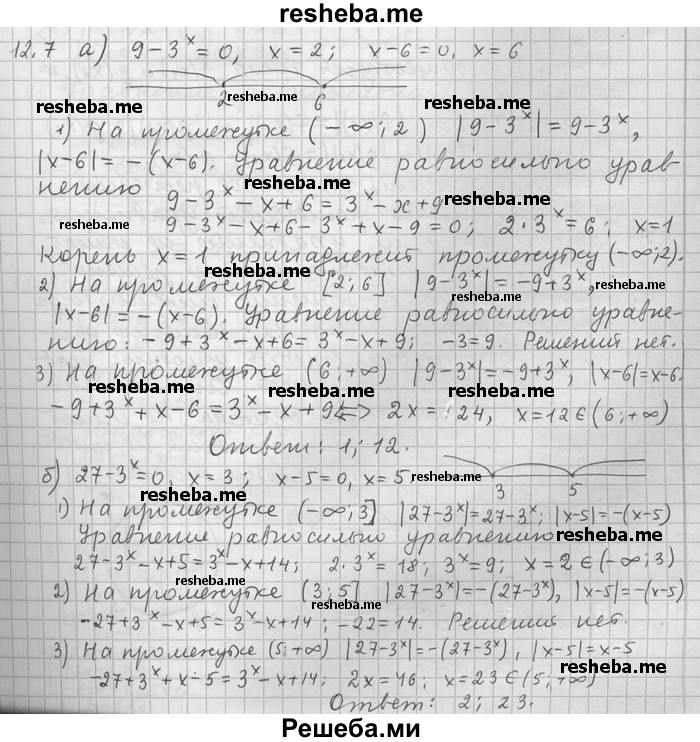 resheba.me
12.7 а) 9-3ˣ=0, x=2; x-6=0, x=6
resheba.me 2 resheba.me 6 resheba.me
1) На промежутке (-∞;2) |9-3ˣ|=9-3ˣ,
|x-6|=-(x-6). Уравнение равносильно урав-
нению
resheba.me resheba.me
9-3ˣ-x+6=3ˣ-x+9
resheba.me 9-3ˣ-x+6-3ˣ+x-9=0; 2·3ˣ=6; x=1
Корень x=1 принадлежит промежутку (-∞;2).
resheba.me
2) На промежутке [2;6] |9-3ˣ|=-9+3ˣ,
resheba.me
|x-6|=-(x-6). Уравнение равносильно уравне-
нию: -9+3ˣ-x+6=3ˣ-x+9; -3=9. Решений нет.
resheba.me
3) На промежутке (6;+∞) |9-3ˣ|=-9+3ˣ, |x-6|=x-6.
resheba.me resheba.me
-9+3ˣ+x-6=3ˣ-x+9⟺ 2x=24, x=12∈(6;+∞)
Ответ: 1; 12.
б) 27-3ˣ=0, x=3; x-5=0, x=5 resheba.me
resheba.me 3 5
1) На промежутке (-∞;3] |27-3ˣ|=27-3ˣ; |x-5|=-(x-5)
Уравнение равносильно уравнению resheba.me
27-3ˣ-x+5=3ˣ-x+14; 2·3ˣ=18; 3ˣ=9; x=2∈(-∞;3)
resheba.me
2) На промежутке (3;5] |27-3ˣ|=-(27-3ˣ), |x-5|=-(x-5)
resheba.me
-27+3ˣ-x+5=3ˣ-x+14; -22=14. Решений нет.
3) На промежутке (5;+∞) |27-3ˣ|=-(27-3ˣ), |x-5|=x-5
resheba.me resheba.me
-27+3ˣ+x-5=3ˣ-x+14; 2x=46; x=23∈(5;+∞)
Ответ: 2; 23.
Решеба.ми